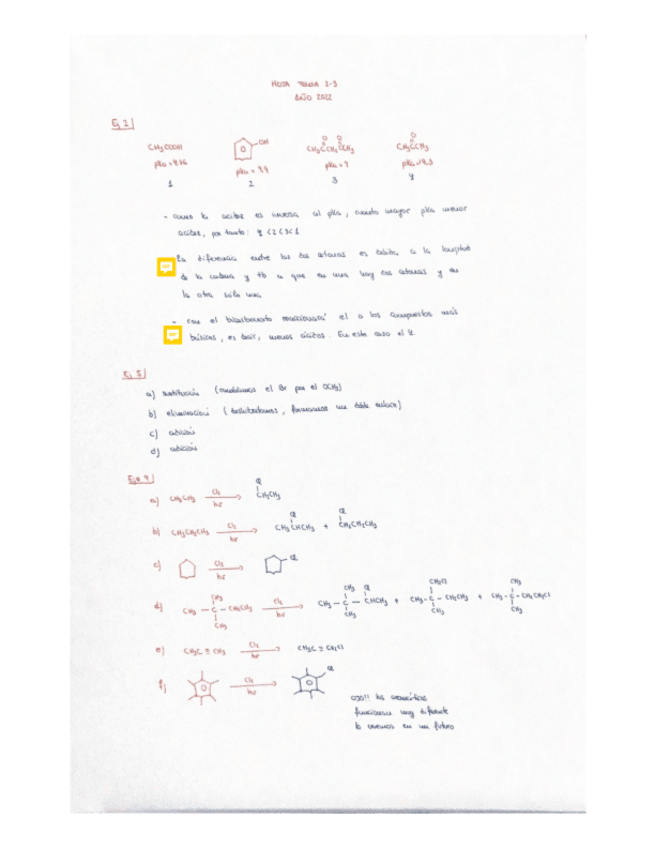 HOJA TEMA 2-3
AÑO 2022
Ej 2
CH3COOH
OH
O O
CH3CCH2CCH3
O
CH3CCH3
pKa = 9.9
pKa = 9
pKa = 19.3
1 2 3 4
- como la acidez es inversa al pKa, cuanto mayor pKa menor
acidez, por tanto: 4 < 2 < 3 < 1
- La diferencia entre las dos cetonas es debido a la longitud
de la cadena y tb a que en una hay dos cetonas y en
la otra solo una.
- con el bicarbonato reaccionará el o los compuestos más
básicos, es decir, menos ácidos. En este caso el 4.
Ej 5
a) sustitución (cambiamos el Br por el OCH3)
b) eliminación ( , formamos un doble enlace)
c) adición
d) adición
Eje 9
a) CH3CH3 Cl2 hν
Cl
CH2CH3
b) CH3CH2CH3 Cl2 hν
Cl
CH3CHCH3 +
Cl
CH2CH2CH3
c) Cl2 hν Cl
d) CH3
CH3 - C - CH2CH3
CH3
Cl2 hν
CH3 Cl
CH3 - C - CHCH3 +
CH3
CH2Cl
CH3 - C - CH2CH3 +
CH3
CH3
CH3 - C - CH2CH2Cl
CH3
e) CH3C ≡ CH3 Cl2 hν CH3C ≡ CH2Cl
f) Cl2 hν Cl
OJO!! los aromáticos
funcionan muy diferente
lo veremos en un futuro